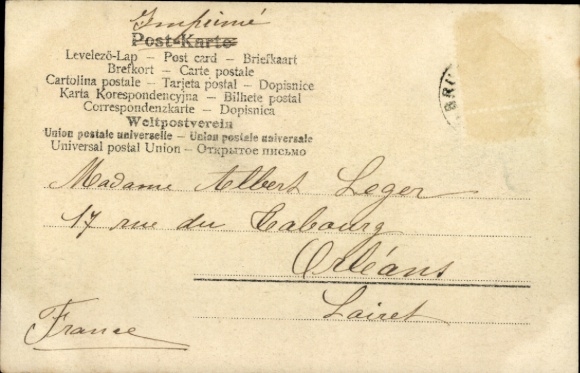 Imprimé
Post-Karte
Levelező-Lap – Post card – Briefkaart
Brefkort – Carte postale
Cartolina postale – Tarjeta postal – Dopisnice
Karta Korespondencyjna – Bilhete postal
Correspondenzkarte – Dopisnica
Weltpostverein
Union postale universelle – Union postale universale
Universal postal Union – Открытое письмо
Madame Albert Leger
17 rue du Tabourg
Orléans
Loiret
France
BRU